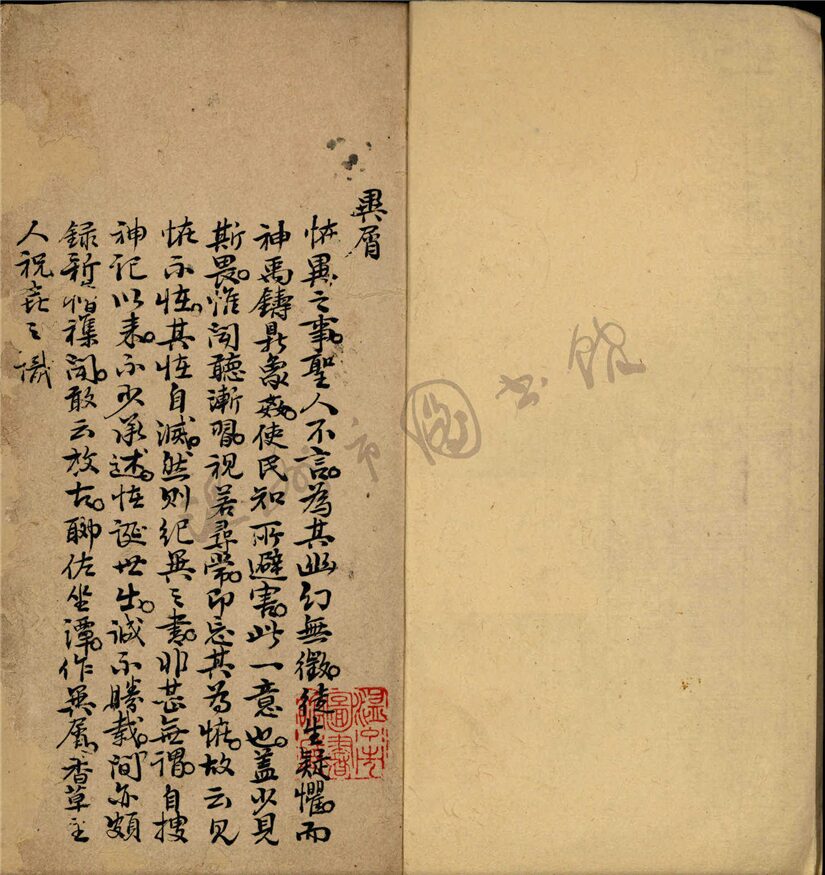 異屑
恠異之事。聖人不言。為其幽幻無徵。徒生疑懼。而
神禹鑄鼎象姦。使民知所避害。此一意也。蓋少見
斯畏。惟聞聽漸習。視若尋常。即忘其為恠。故云見
恠不恠。其恠自滅。然則紀異之書。非甚無謂。自搜
神記以來。不少承述。恠誕世出。誠不勝載。間亦頗
録新襍聞。敢云放古。聊佐坐譚。作異屑。香草主
人祝㐂之識
温州市圖書館
温州市
圖書